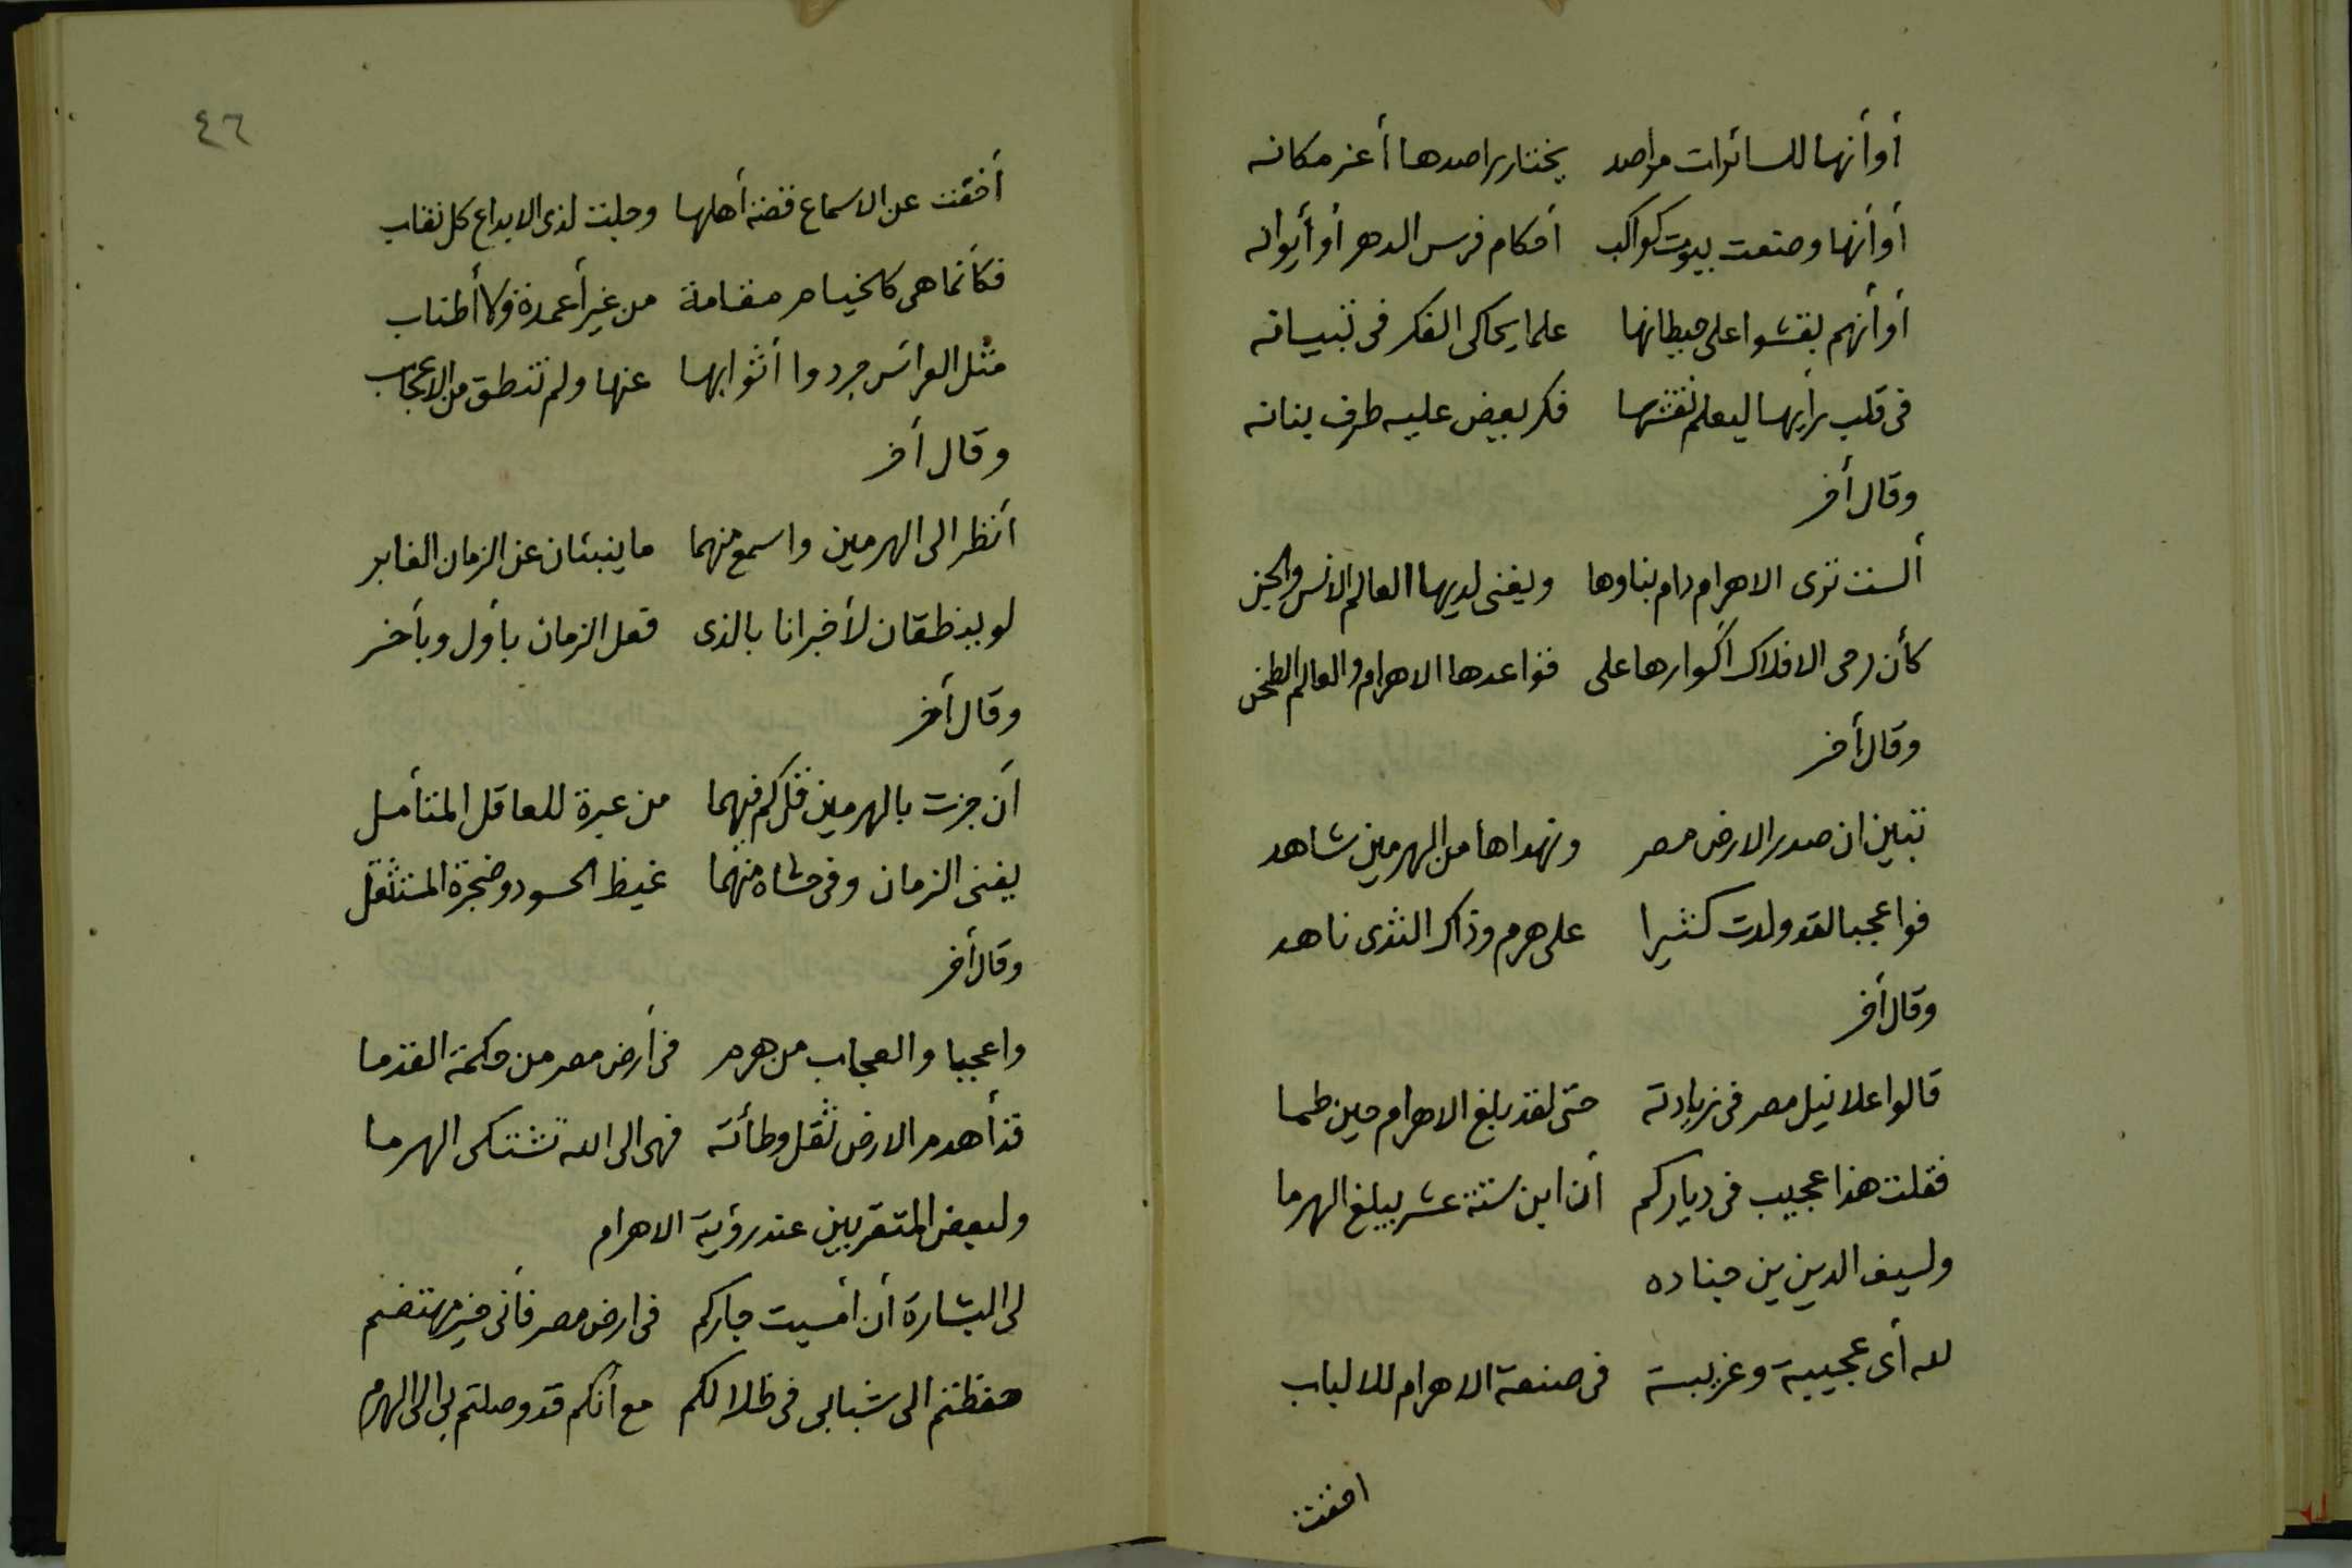 أو أنها للسائرات مراصد يختار راصدها أعز مكانه
أو أنها وضعت بيوت كواكب أحكام فرس الدهر أو أيوانه
أو أنهم نقشوا على حيطانها علما يحاكى الفكر فى تبيانه
فى قلب رأيها ليعلم نقشها فكر يعيض عليه طرف بنانه
وقال أخر
ألست ترى الاهرام دام بناوها ويفنى لديها العالم الانس والجن
كأن رحى الافلاك أكوارها على قواعدها الاهرام والعالم الطحن
وقال أخر
تبين ان صدر الارض مصر ونهداها من الهرمين شاهد
فواعجبا لقد ولدت كثيرا على هرم وذاك الثدى ناهد
وقال أخر
قالوا علا نيل مصر فى زيادته حتى لقد بلغ الاهرام حين طما
فقلت هذا عجيب فى دياركم أن ابن ستة عشر يبلغ الهرما
ولسيف الدين بن جناده
لله أى عجيبة وغريبة فى صنعة الاهرام للالباب
اخفت
٤٦
أخفت عن الاسماع قصة أهلها وجلت لذى الابداع كل نقاب
فكأنما هى كالخيام مقامة من غير أعمدة ولا أطناب
مثل العرائس جردوا أثوابها عنها ولم تنطق من الاعجاب
وقال أخر
أنظر الى الهرمين واسمع منهما ما ينبئان عن الزمان الغابر
لو ينطقان لأخبرانا بالذى فعل الزمان بأول وبأخر
وقال أخر
أن جزت بالهرمين قل كم فيهما من عبرة للعاقل المتأمل
يفنى الزمان وفى حشاه منهما غيظ الحسود وضجرة المستثقل
وقال أخر
واعجبا والعجاب من هرم فى أرض مصر من حكمة القدما
قد أهدم الارض ثقل وطأته فهى الى الله تشتكى الهرما
ولبعض المتقربين عند رؤية الاهرام
لى البشارة أن أمسيت جاركم فى ارض مصر فأنى غير مهتضم
حفظتم الى شبابى فى ظلالكم مع أنكم قد وصلتم بى الى الهرم